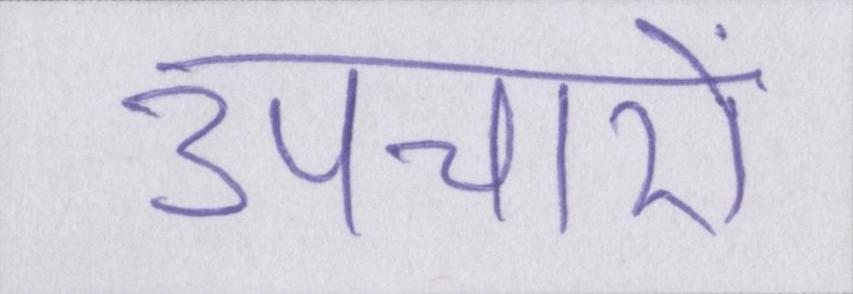 उपचारों